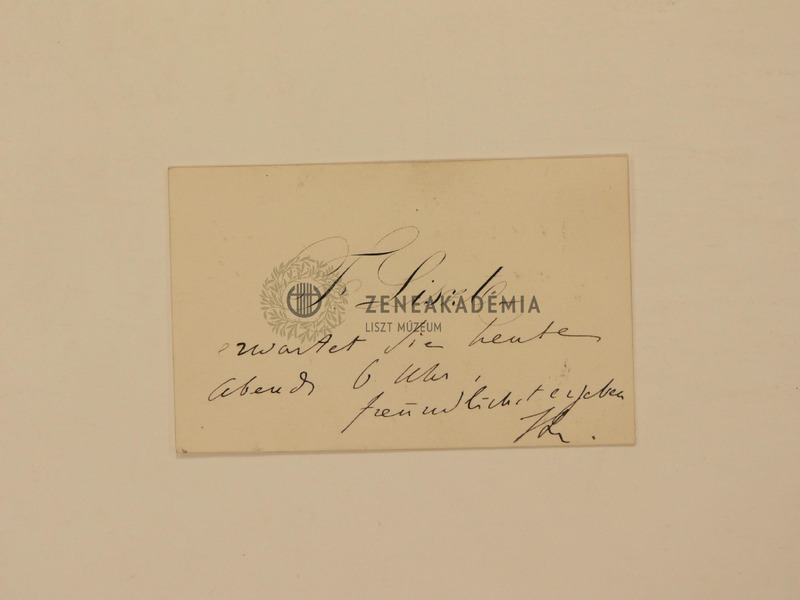 F. Liszt
ZENEAKADÉMIA
LISZT MÚZEUM
erwartet Sie heute
Abends 6 Uhr,
freundlichst ergeben